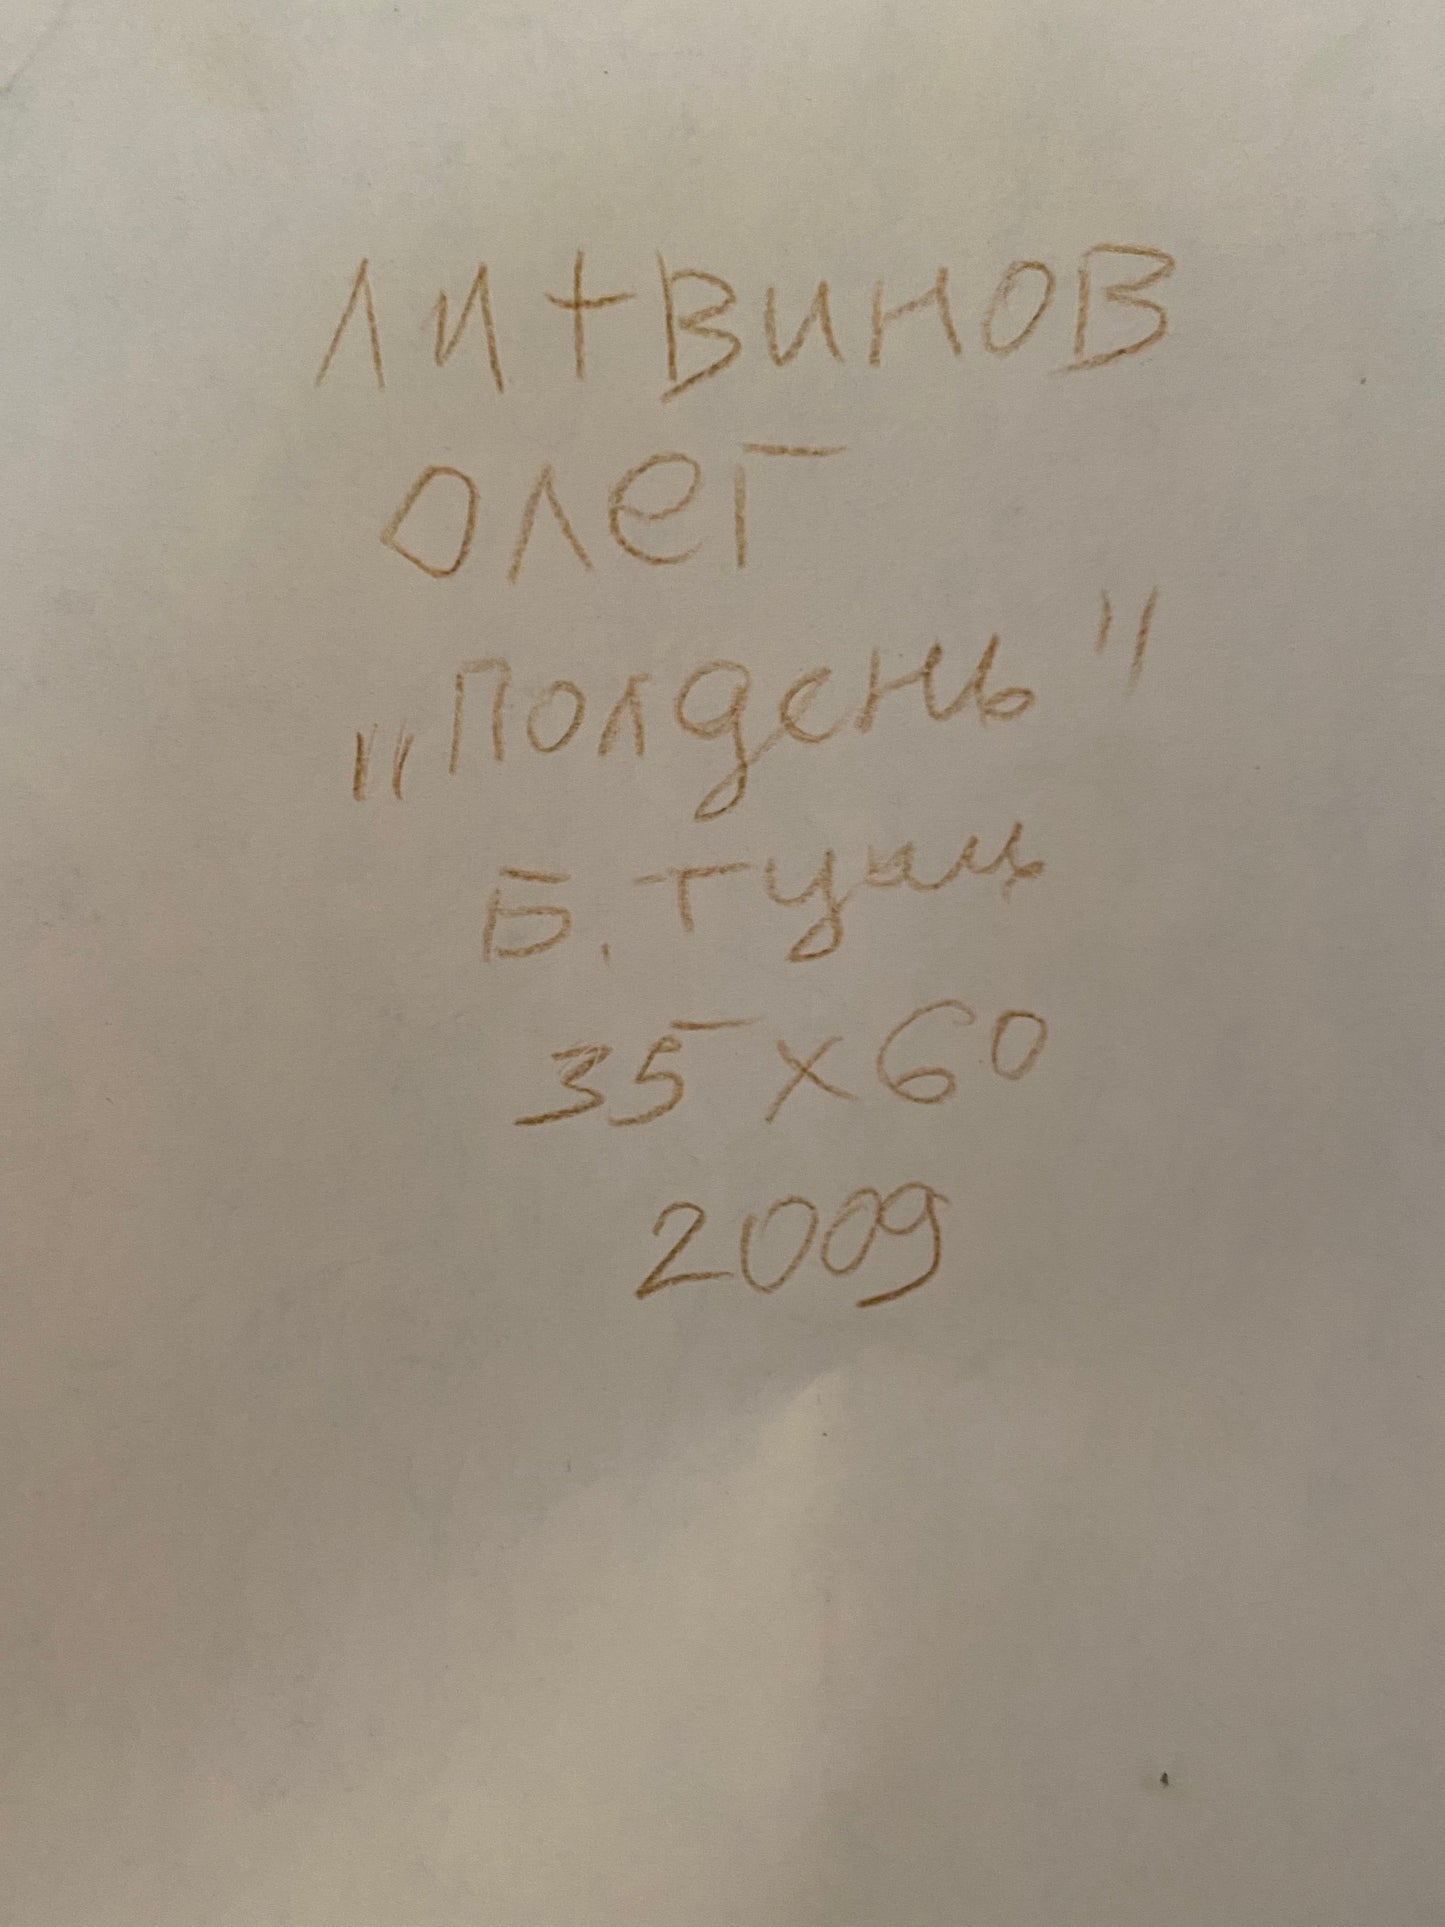 ЛИТВИНОВ
ОЛЕГ
„Полдень"
Б. Гуашь
35 х 60
2009